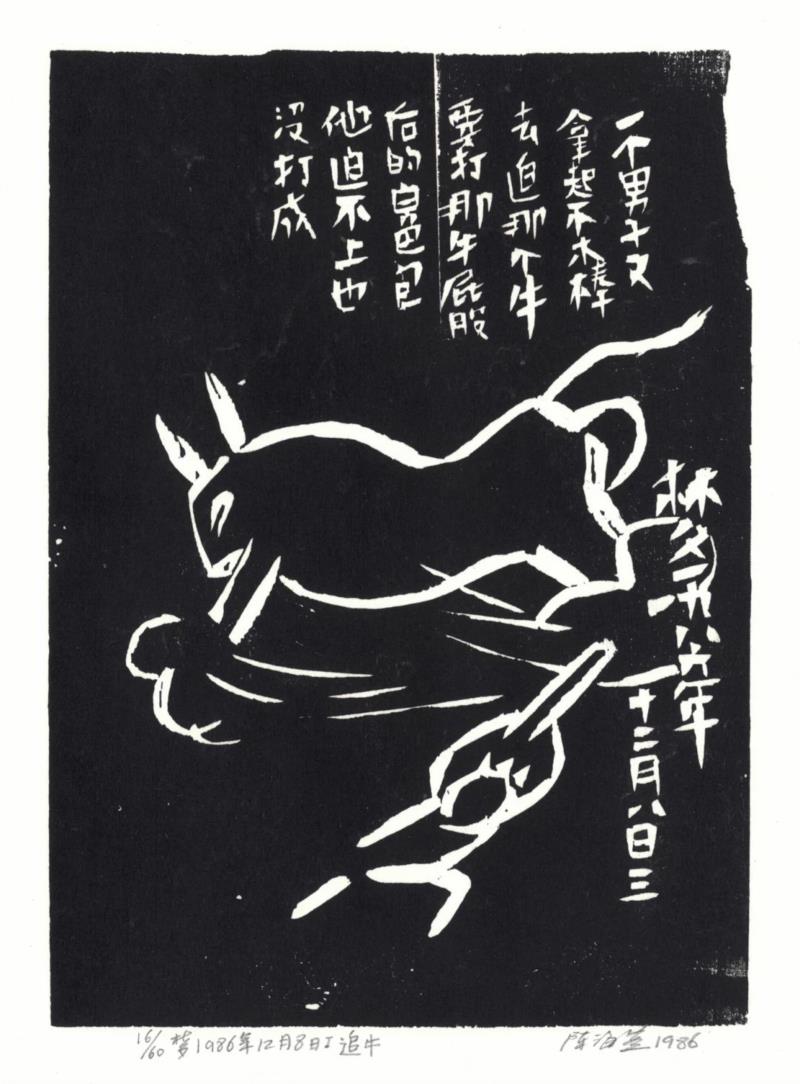 一个男子又
拿起个木棒
去追那个牛
要打那牛屁股
后的色包
他追不上也
没打成
梦一九八六年
十二月八日三
16/60 梦1986年12月8日I 追牛
陈海燕 1986